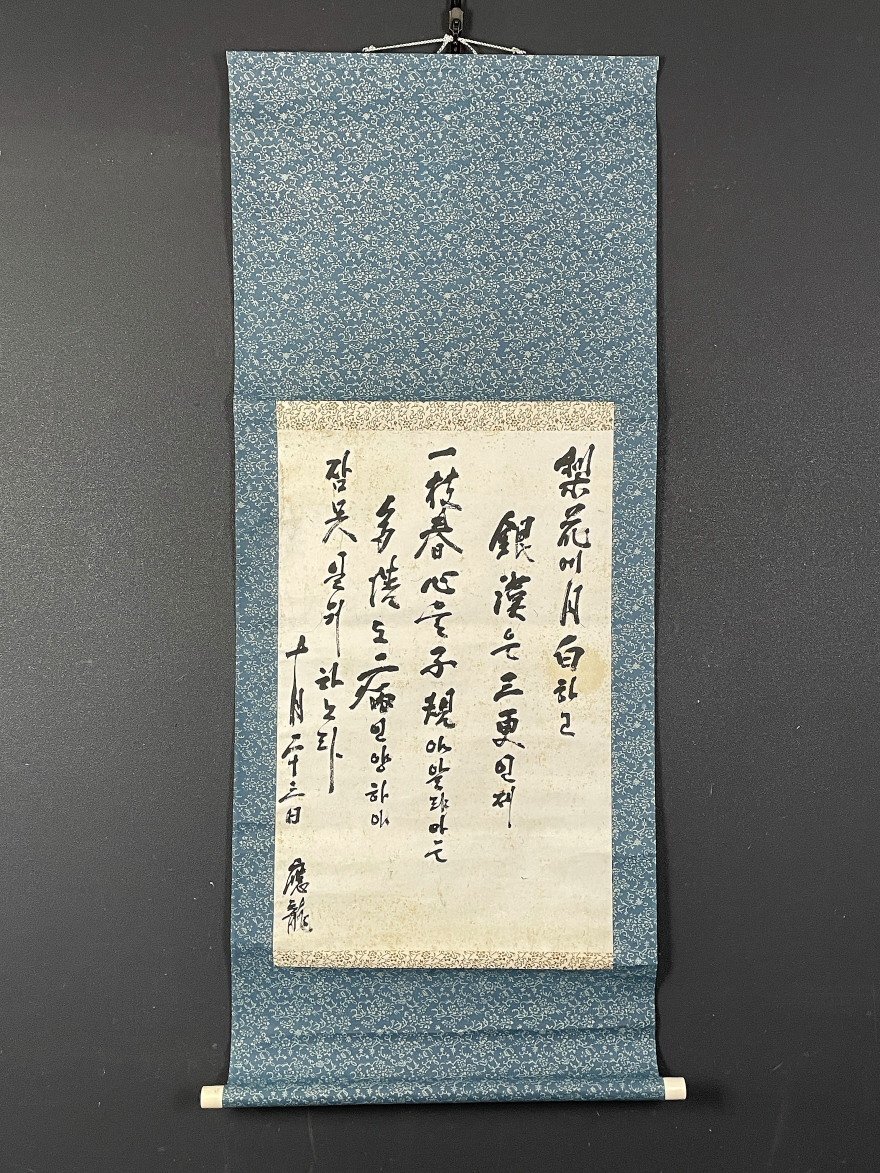 梨花에月白하고
銀漢은三更인제
一枝春心을子規야알랴마는
多情도病인양하야
잠못일워하노라
十月二十三日 應龍